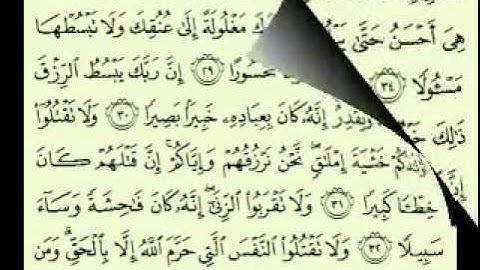 هِىَ أَحْسَنُ حَتَّىٰ مَغْلُولَةً إِلَىٰ عُنُقِكَ وَلَا تَبْسُطْهَا
مَسْـُٔولًا ٣٤ مَّحْسُورًا ٢٩ إِنَّ رَبَّكَ يَبْسُطُ ٱلرِّزْقَ
ذَٰلِكَ وَيَقْدِرُ إِنَّهُۥ كَانَ بِعِبَادِهِۦ خَبِيرًۢا بَصِيرًا ٣٠ وَلَا تَقْتُلُوٓا۟
خَشْيَةَ إِمْلَٰقٍ نَّحْنُ نَرْزُقُهُمْ وَإِيَّاكُمْ إِنَّ قَتْلَهُمْ كَانَ
خِطْـًٔا كَبِيرًا ٣١ وَلَا تَقْرَبُوا۟ ٱلزِّنَىٰٓ إِنَّهُۥ كَانَ فَٰحِشَةً وَسَآءَ
سَبِيلًا ٣٢ وَلَا تَقْتُلُوا۟ ٱلنَّفْسَ ٱلَّتِى حَرَّمَ ٱللَّهُ إِلَّا بِٱلْحَقِّ وَمَن